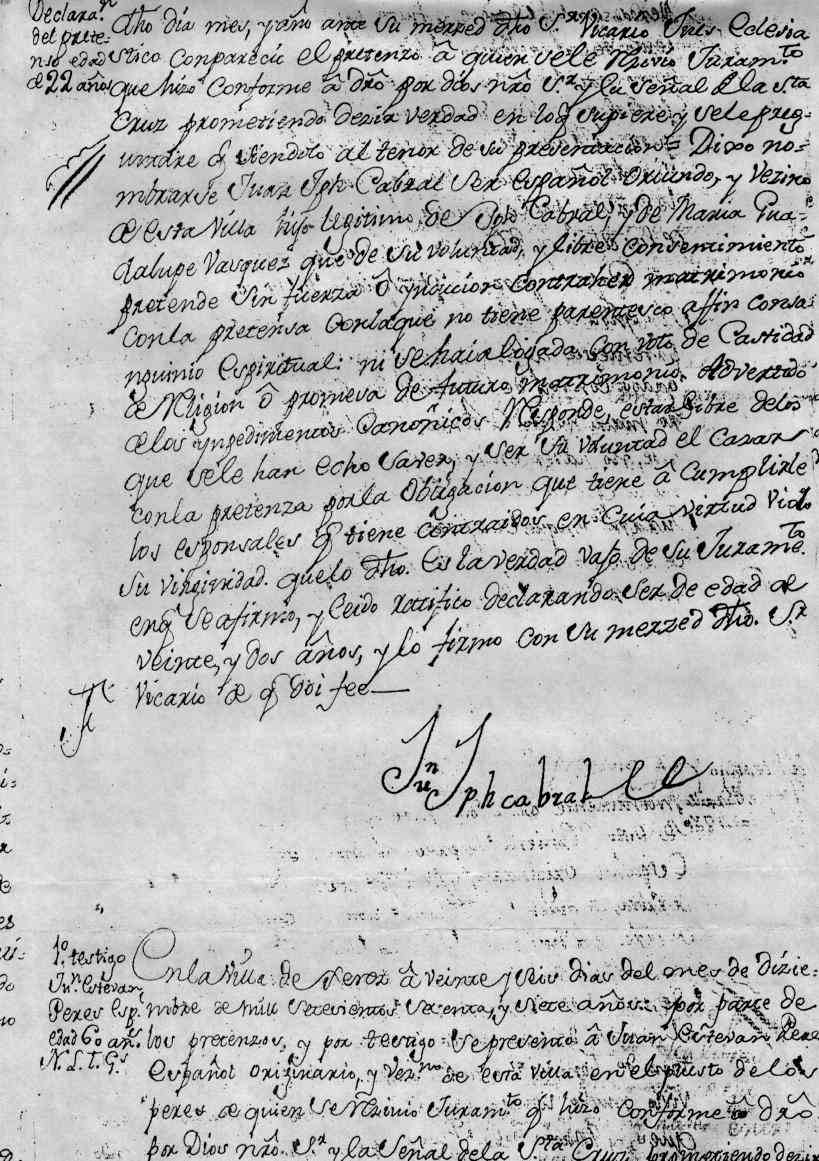 Declara.ⁿ
del prete-
nso edad
de 22 años
dho día mes, y año ante su merzed dho S.ʳ Vicario Jues Eclesia
stico Conparecio el pretenzo â quien se le Rezivio Juram.ᵗᵒ
que hizo Conforme â dro por dios nro S.ʳ y la señal de la S.ᵗᵃ
Cruz prometiendo dezir verdad en lo q supiere y se le preg-
untare q siendolo al tenor de su presentacion = Dixo no-
mbrarse Juan Jph Cabral ser español Oriundo, y Vezino
de esta Villa hijo legitimo de Cabral, y de Maria Gua-
dalupe Vasquez que de su voluntad, y libre consentimiento
pretende sin fuerza ô ynducion contraher matrimonio
con la pretensa con la que no tiene parentesco affin consa
nguinio espiritual: ni se haia ligada con voto de Castidad
de Religion ô promesa de futuro matrimonio. Advertido
de los ynpedimentos Canoñicos Responde, estar libre de los
que se le han echo saver, y ser su voluntad el Casarse
con la pretenza por la Obligacion que tiene â Cumplirle
los esponsales q tiene Contraidos, en Cuia virtud Violo
su virginidad. que lo dho. es la verdad vajo de su Juram.ᵗᵒ
en q se afirmo, y leido ratifico declarando ser de edad de
veinte, y dos años, y lo firmo con su merzed dho. S.ʳ
Vicario de q doi fee—
Juⁿ Jph cabral
1.º testigo
Juⁿ Estevan
Peres esp.ˡ
edad 60 añ.ˢ
N. L. T. G.ˢ
En la Villa de Jerez â veinte y seis dias del mes de dizie-
mbre de mill setesientos setenta, y siete años. por parte de
los pretenzos, y por testigo se presento â Juan Estevan Pere
español originario, y vez.ⁿᵒ de esta villa en el puesto de los
peres de quien se Rezivio Juram.ᵗᵒ q hizo conforme â dro
por Dios nro. S.ʳ y la Señal de la S.ᵗᵃ Cruz prometiendo dezir